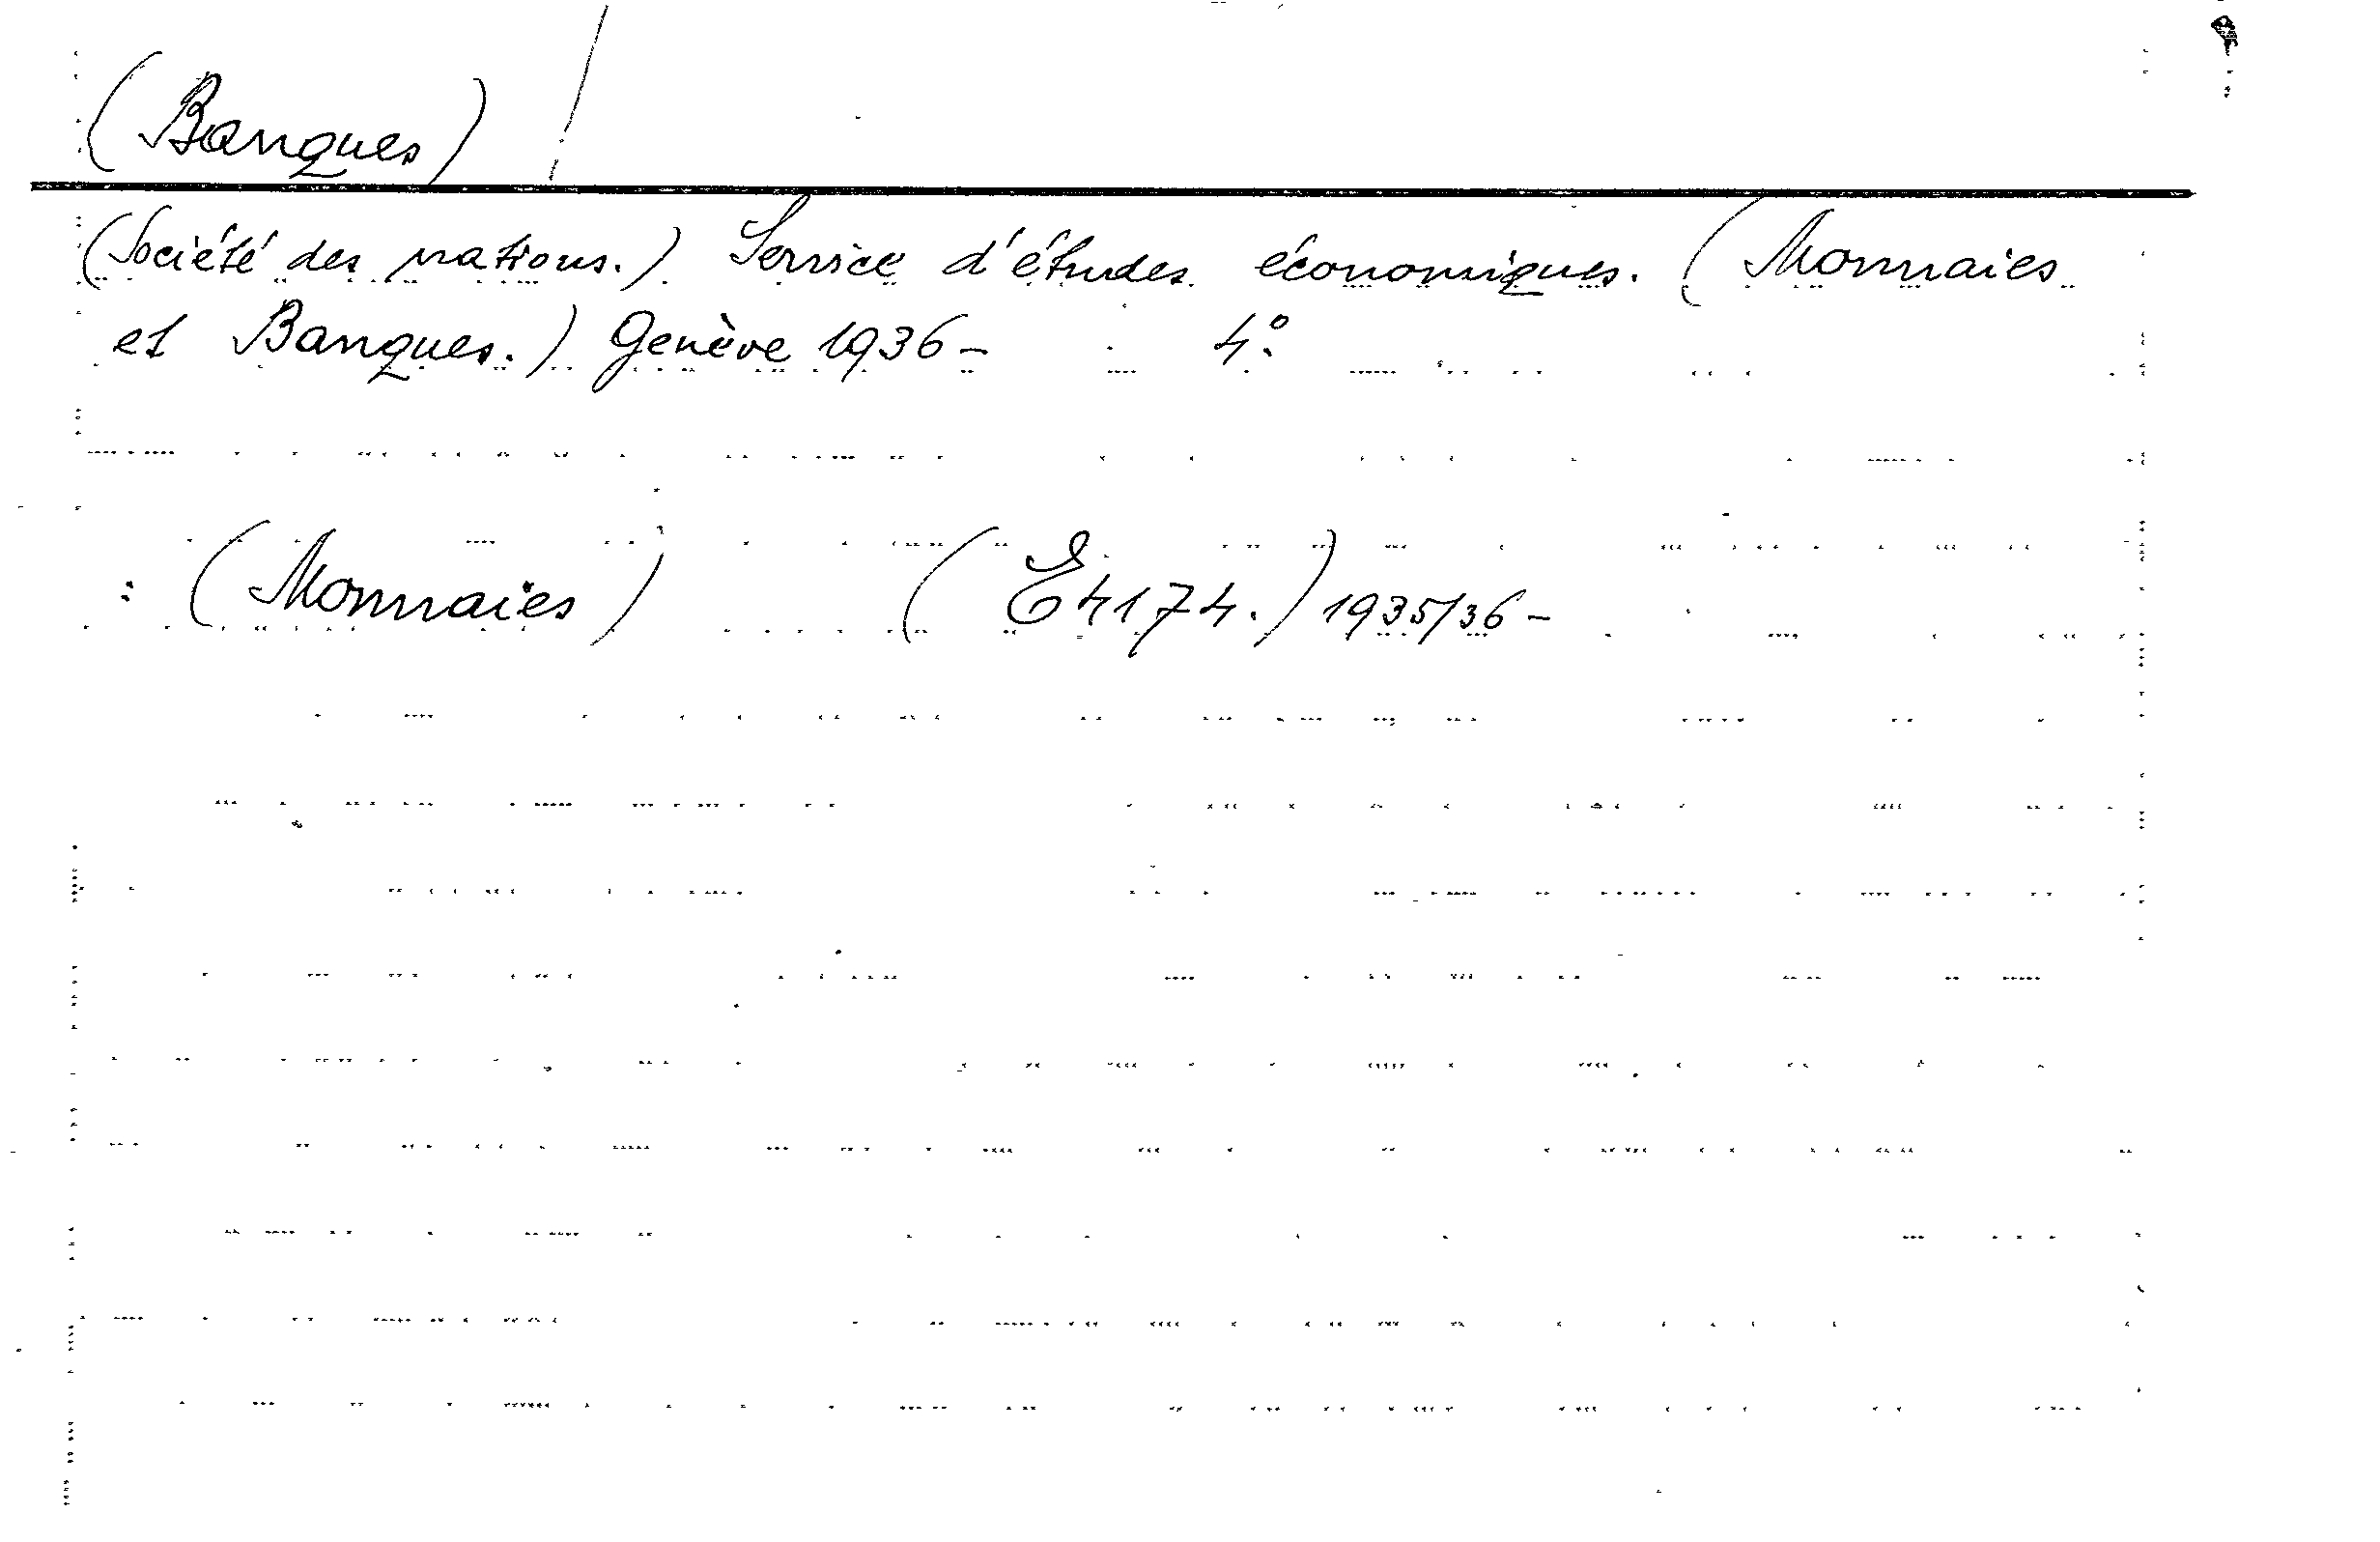 (Banques) /
(Société des nations.) Service d'études économiques. (Monnaies
et Banques.) Genève 1936- 4º.
: (Monnaies) (E 4174.) 1935/36-